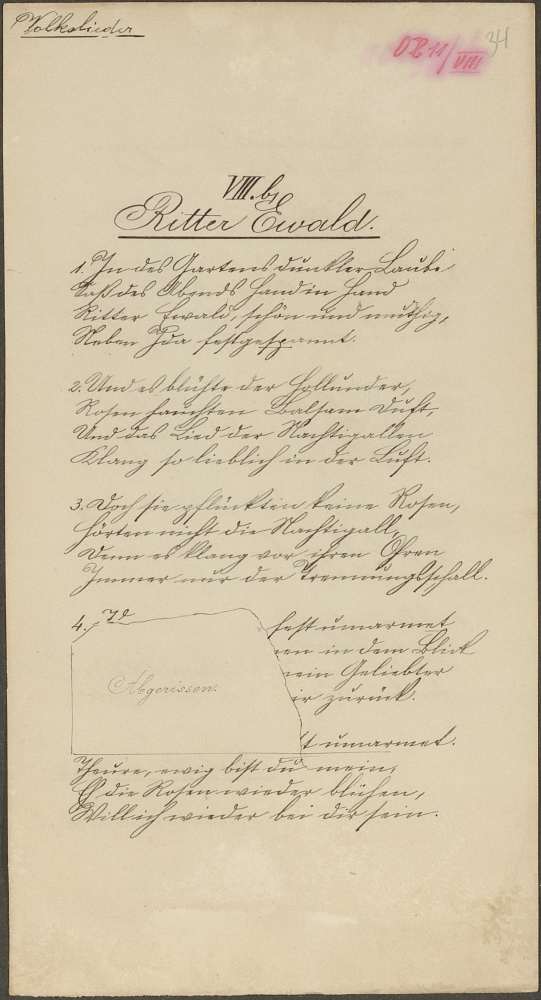 Volkslieder
34
VIII.b,
Ritter Ewald.
1. In des Gartens dunkler Laube
Saß des Abends Hand in Hand
Ritter Ewald, schön und muthig,
Neben Ida festgespannt.
2. Und es blühte der Hollunder,
Rosen hauchten Balsam Duft,
Und das Lied der Nachtigallen
Klang so lieblich in der Luft.
3. Doch sie pflückten keine Rosen,
Hörten nicht die Nachtigall,
Denn es klang vor ihren Ohren
Immer nur der Trennungsschall.
4. Id fest umarmet
en in dem Blick
ein Geliebter
Abgerissen.
ir zurück.
t umarmet.
Theure, ewig bist du mein,
Eh die Rosen wieder blühen,
Will ich wieder bei dir sein.